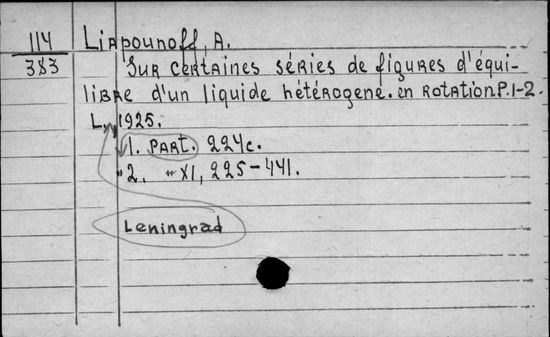 114 Liapounoff, A.
383 Sur certaines séries de figures d'équi-
libre d'un liquide hétérogene. en rotation. P. 1-2.
L., 1925.
1. Part. 224c.
"2. " XI, 225-441.
Leningrad